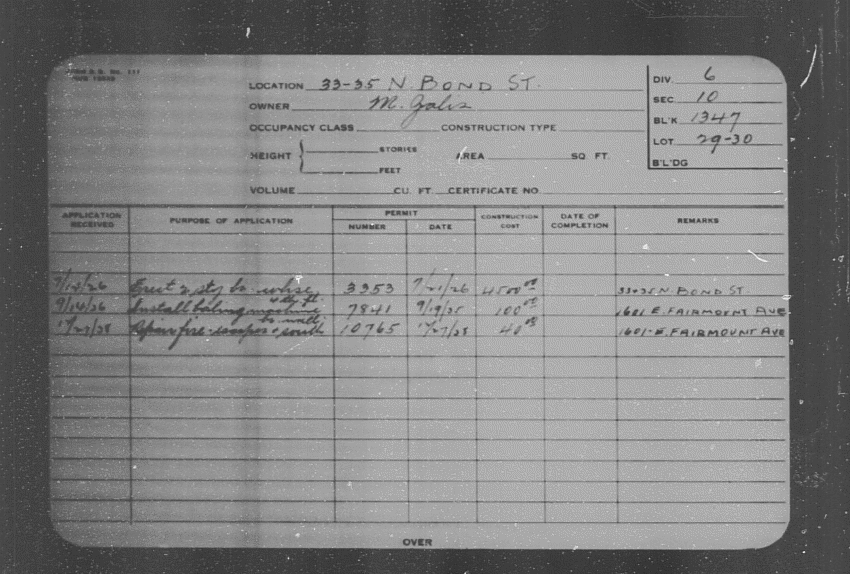 LOCATION 33-35 N. BOND ST.
OWNER M. Galis
OCCUPANCY CLASS CONSTRUCTION TYPE
HEIGHT STORIES AREA SQ FT.
FEET
VOLUME CU. FT. CERTIFICATE NO.
DIV. 6
SEC 10
BL'K 1347
LOT 29-30
B'L'DG
APPLICATION RECEIVED PURPOSE OF APPLICATION PERMIT NUMBER DATE CONSTRUCTION COST DATE OF COMPLETION REMARKS
Erect 2 sty br. whse 3353 7/21/26 4500.00 33+35 N BOND ST.
4th fl.
9/14/26 Install baling machine 7841 100.00 1601 E. FAIRMOUNT AVE
br. wall
Repair fire-escapes + south 10765 40.00 1601-E. FAIRMOUNT AVE
OVER